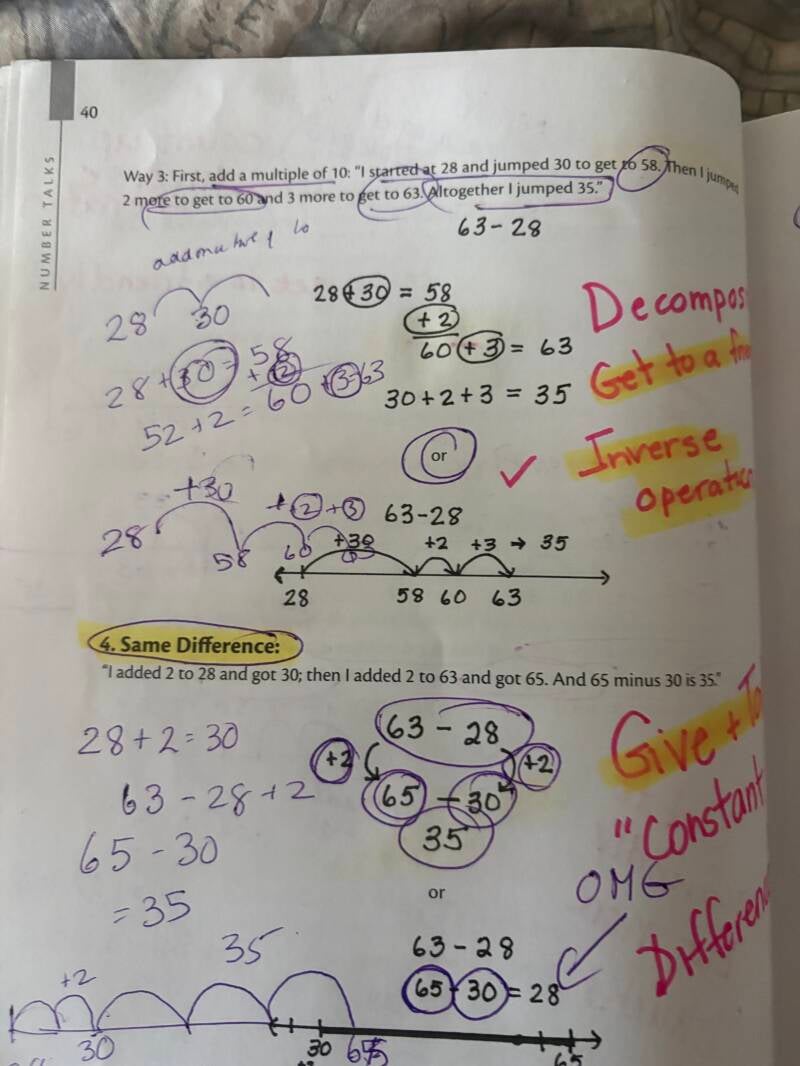 40
NUMBER TALKS
Way 3: First, add a multiple of 10: "I started at 28 and jumped 30 to get to 58. Then I jumped
2 more to get to 60 and 3 more to get to 63. Altogether I jumped 35."
63 - 28
28 30
28 +30 = 58
+2
60 +3 = 63
30+2+3 = 35
Decompos
Get to a
28 + 30 = 58
+ 2
60 + 3 = 63
52 + 2 =
or
Inverse
operatio
+30
+ 2 + 3
28 58 60
63-28
+30 +2 +3 → 35
28 58 60 63
4. Same Difference:
"I added 2 to 28 and got 30; then I added 2 to 63 and got 65. And 65 minus 30 is 35."
28 + 2 = 30
63 - 28 + 2
65 - 30
= 35
63 - 28
+2 +2
65 - 30
35
Give +
"Constant
Differen
or
OMG
63 - 28
65 - 30 = 28
35
+2
30
30 65